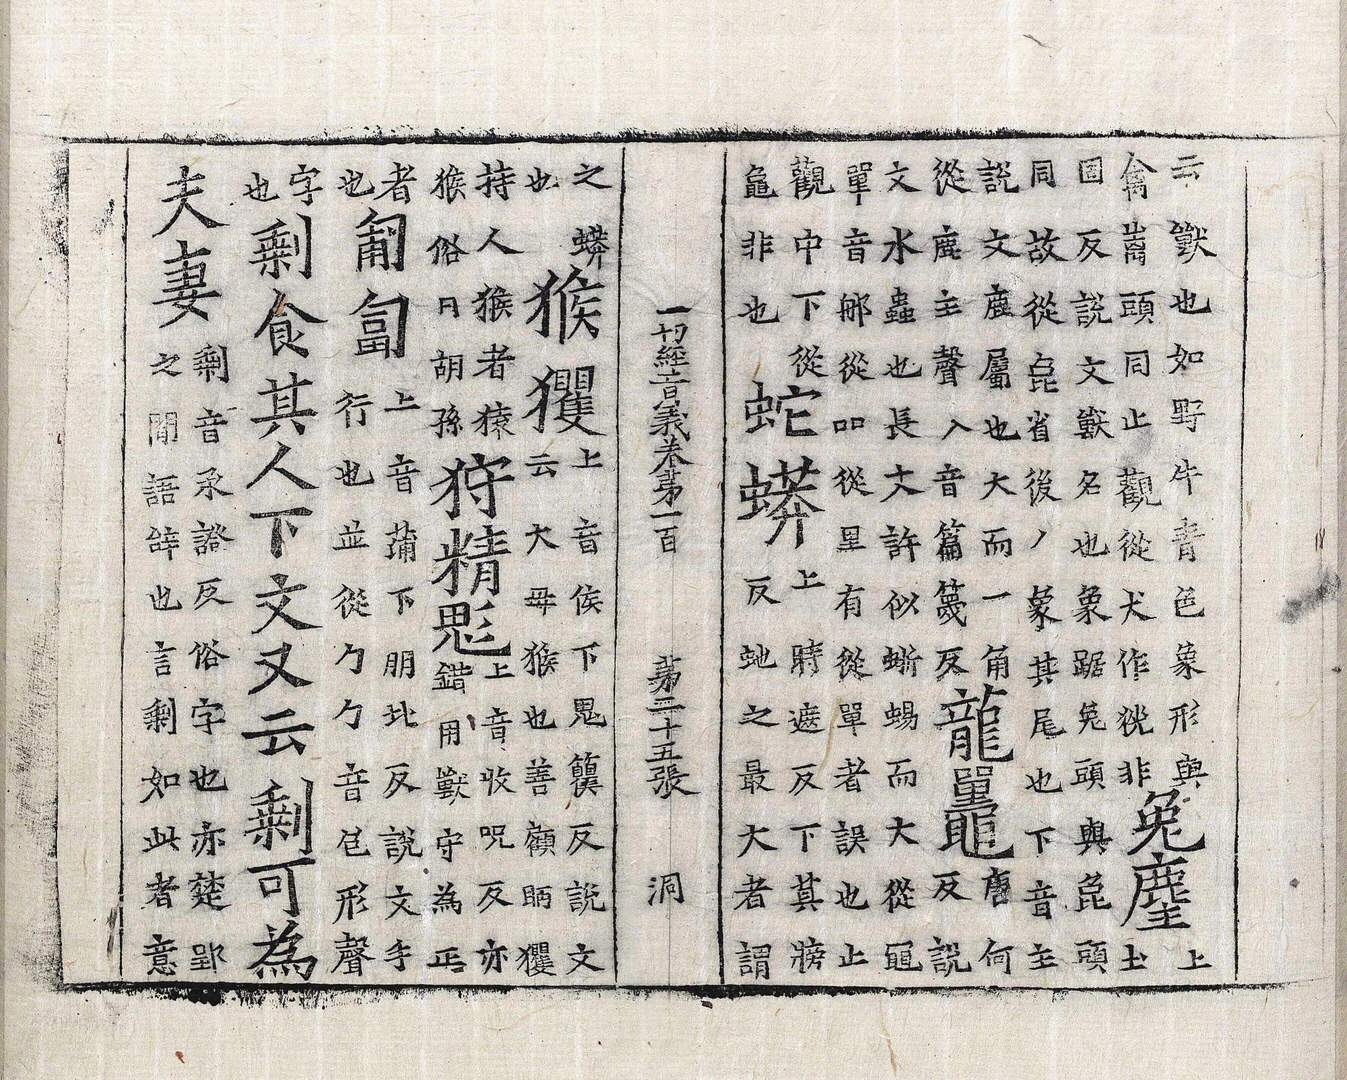 云獸也如野牛青色象形與兔麈上
禽离頭同止觀從犬作㹸非土
固反說文獸名也象踞兔頭與㲋頭
同故從㲋省後丿象其尾也下音主
說文麈屬也大而一角唐何
從鹿主聲入音篇篾反龍鼉反說
文水蟲也長丈許似蜥蜴而大從黽
單音那從吅從里有從單者誤也止
觀中下從蛇蟒上時遮反下莫牓
龜非也反虵之最大者謂
一切經音義卷第一百 第三十五張 洞
之蟒音侯下㒵籰反說文
也猴玃上云大母猴也善顧眄玃
持人猴者猿上音收呪反亦
猴俗曰胡孫狩精鬽錯用獸守為正
者上音蒲下朋北反說文手
也匍匐行也並從勹勹音包形聲
字
也剩食其人下文又云剩可為
剩音承證反俗字也亦楚郢
夫妻之間語辞也言剩如此者意